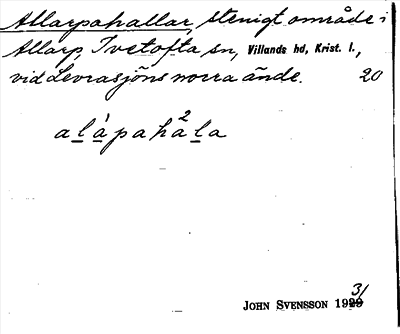 Allarpahallar, stenigt område i
Allarp, Ivetofta sn, Villands hd, Krist. l.,
vid Levrasjöns norra ände. 20
alàpaha²la
JOHN SVENSSON 1931